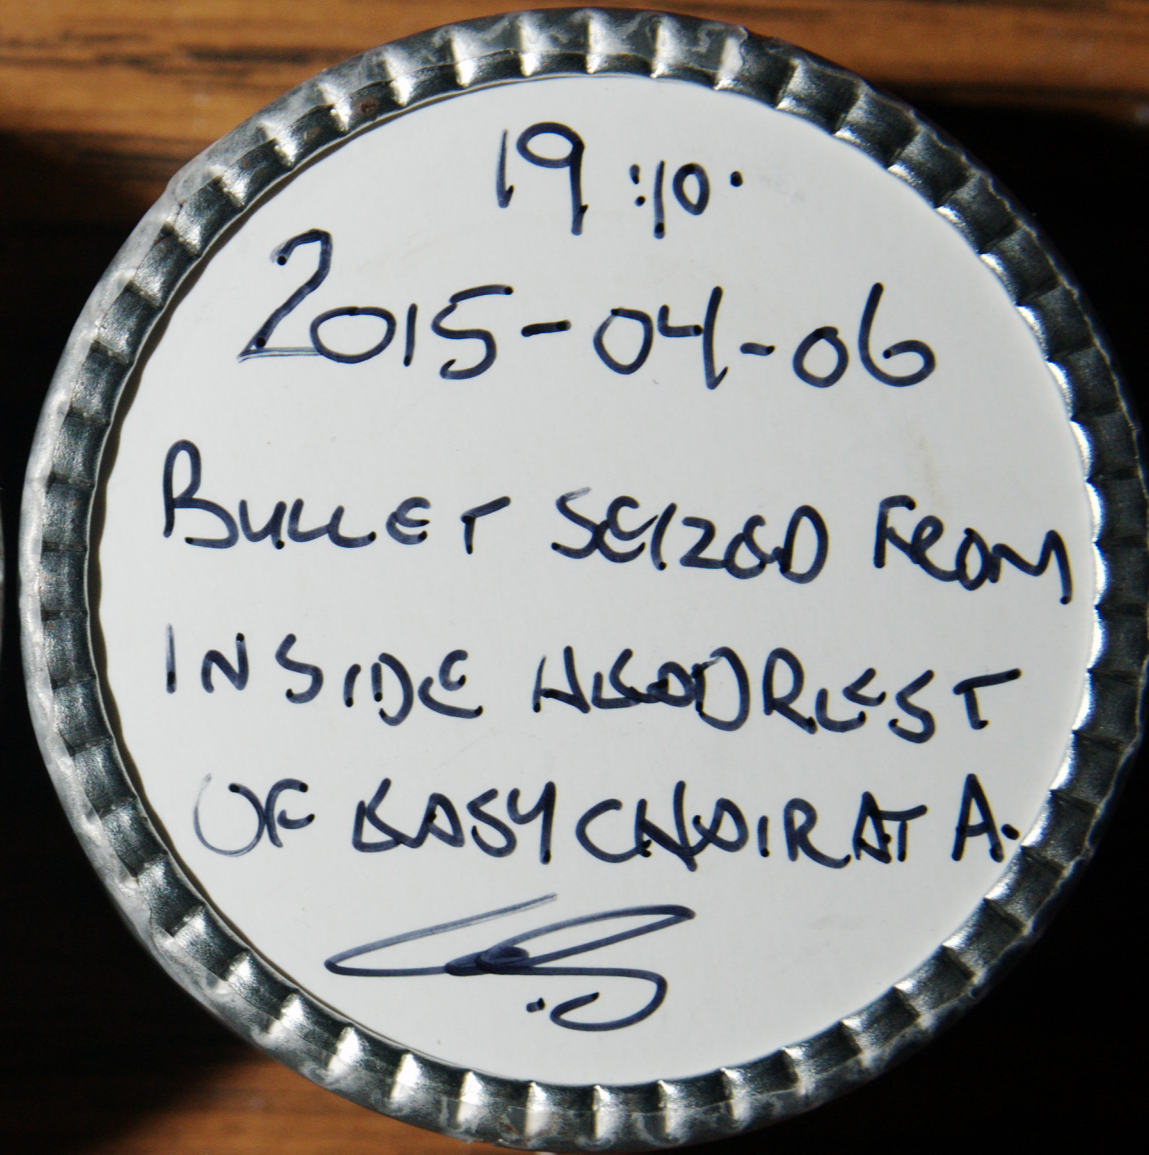 19:10.
2015-04-06
BULLET SEIZED FROM
INSIDE HEADREST
OF EASY CHAIR AT A.